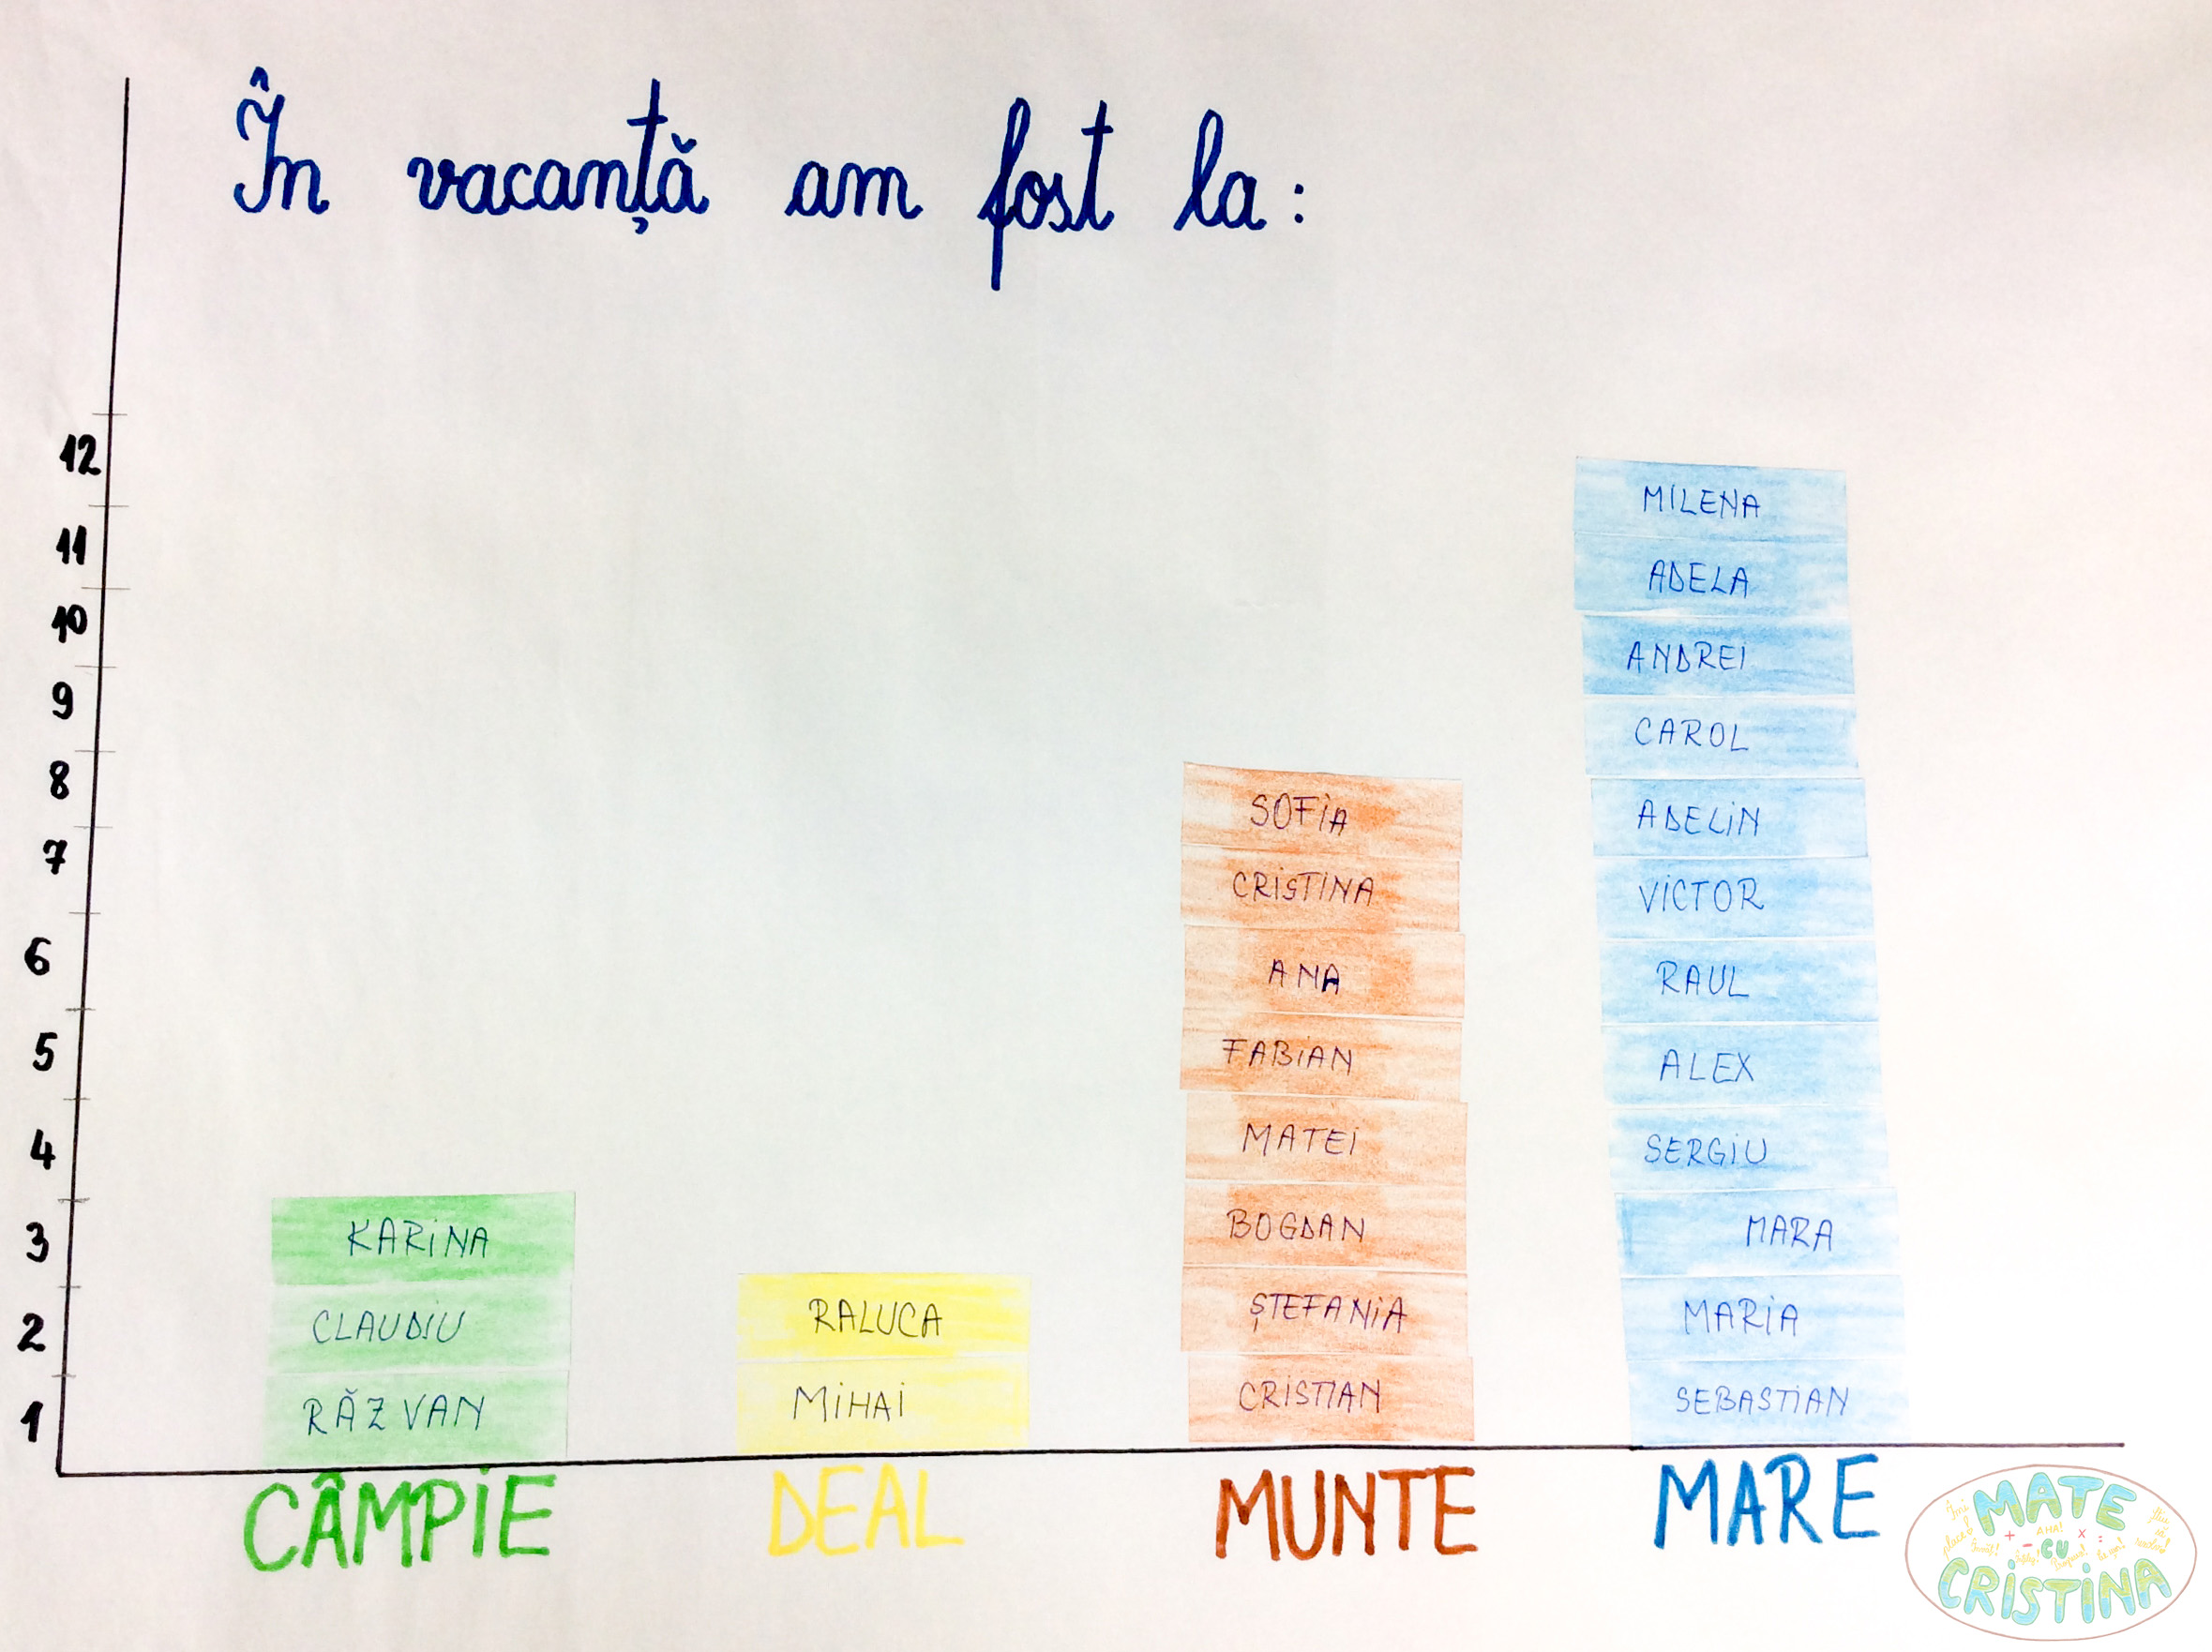 În vacanță am fost la:
12
11
10
9
8
7
6
5
4
3
2
1
KARINA
CLAUDIU
RĂZVAN
RALUCA
MIHAI
SOFIA
CRISTINA
ANA
FABIAN
MATEI
BOGDAN
ȘTEFANIA
CRISTIAN
MILENA
ADELA
ANDREI
CAROL
ADELIN
VICTOR
RAUL
ALEX
SERGIU
MARA
MARIA
SEBASTIAN
CÂMPIE DEAL MUNTE MARE
MATE
AHA!
CU
CRISTINA